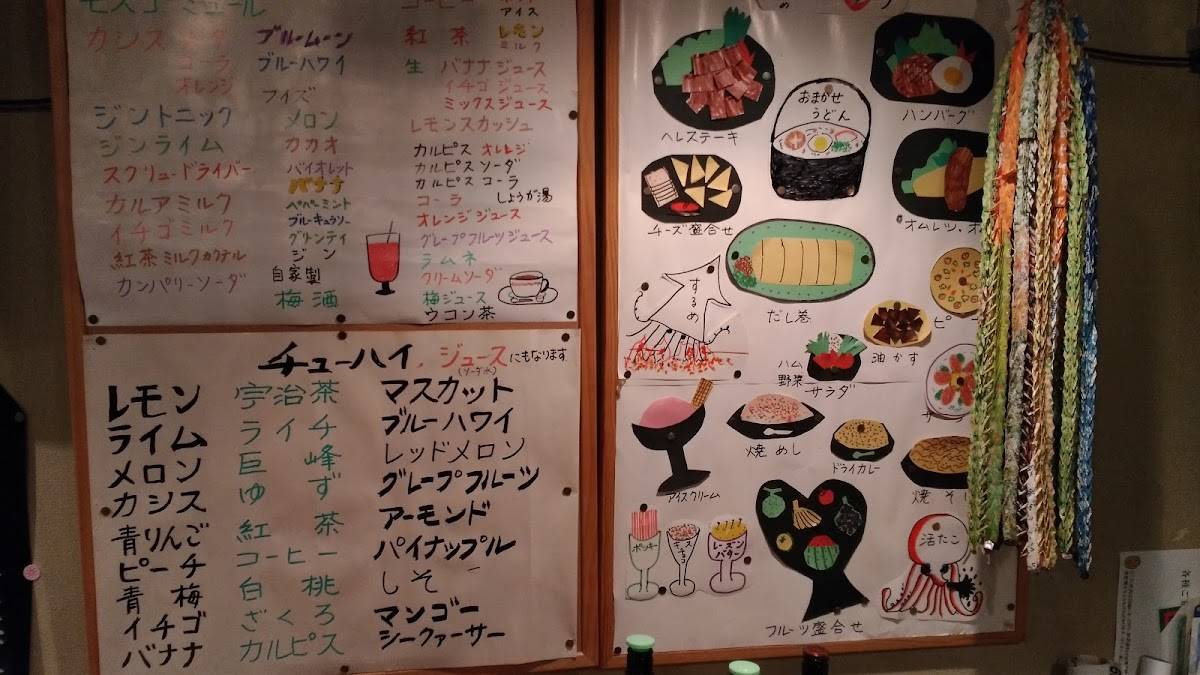 モスコーミュール
カシスソーダ
コーラ
オレンジ
ジントニック
ジンライム
スクリュードライバー
カルアミルク
イチゴミルク
紅茶ミルクカクテル
カンパリーソーダ
ブルームーン
ブルーハワイ
フィズ
メロン
カカオ
バイオレット
バナナ
ペパーミント
ブルーキュラソー
グリンティ
ジン
自家製
梅酒
コーヒー
アイス
紅茶 レモン
ミルク
生 バナナジュース
イチゴジュース
ミックスジュース
レモンスカッシュ
カルピスオレンジ
カルピスソーダ
カルピスコーラ
コーラ しょうが湯
オレンジジュース
グレープフルーツジュース
ラムネ
クリームソーダ
梅ジュース
ウコン茶
チューハイ,ジュースにもなります
(ソーダ水)
レモン
ライム
メロン
カシス
青りんご
ピーチ
青梅
イチゴ
バナナ
宇治茶
ライチ
巨峰
ゆず
紅茶
コーヒー
白桃
ざくろ
カルピス
マスカット
ブルーハワイ
レッドメロン
グレープフルーツ
アーモンド
パイナップル
しそ
マンゴー
シークァーサー
ヘレステーキ
おまかせ
うどん
ハンバーグ
チーズ盛合せ
オムレツ.オ
するめ
だし巻
ピー
油かす
ハム
野菜
サラダ
アイスクリーム
焼めし
ドライカレー
焼そ
ポッキー
キスチョコ
レーズン
バター
フルーツ盛合せ
活たこ